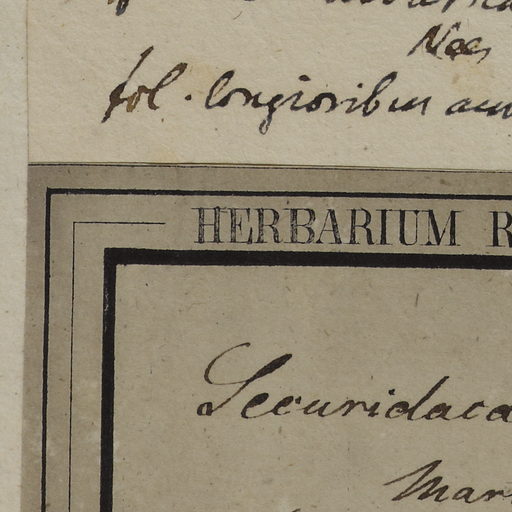 Nees
fol. longioribus acu
HERBARIUM R
Securidaca
Mar